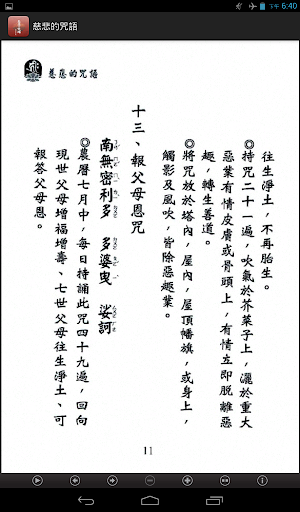 下午 6:40
慈悲的咒語
慈悲的咒語
往生淨土，不再胎生。
◎持咒二十一遍，吹氣於芥菜子上，灑於重大
惡業有情皮膚或骨頭上，有情立即脫離惡
趣，轉生善道。
◎將咒放於塔內，屋內，屋頂幡旗，或身上，
觸影及風吹，皆除惡趣業。
十三、報父母恩咒
南無密利多　多婆曳　娑訶
◎農曆七月中，每日持誦此咒四十九遍，回向
現世父母增福增壽、七世父母往生淨土、可
報答父母恩。
11